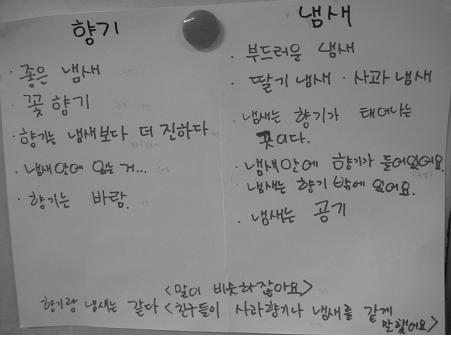 향기
· 좋은 냄새
· 꽃 향기
· 향기는 냄새보다 더 진하다
· 냄새안에 있는 거...
· 향기는 바람.
냄새
· 부드러운 냄새
· 딸기 냄새 · 사과 냄새
· 냄새는 향기가 태어나는
곳이다.
· 냄새안에 향기가 들어있어요.
냄새는 향기 밖에 있어요.
· 냄새는 공기
<말이 비슷하잖아요>
향기랑 냄새는 같다 <친구들이 사과향기나 냄새를 같게
말했어요>